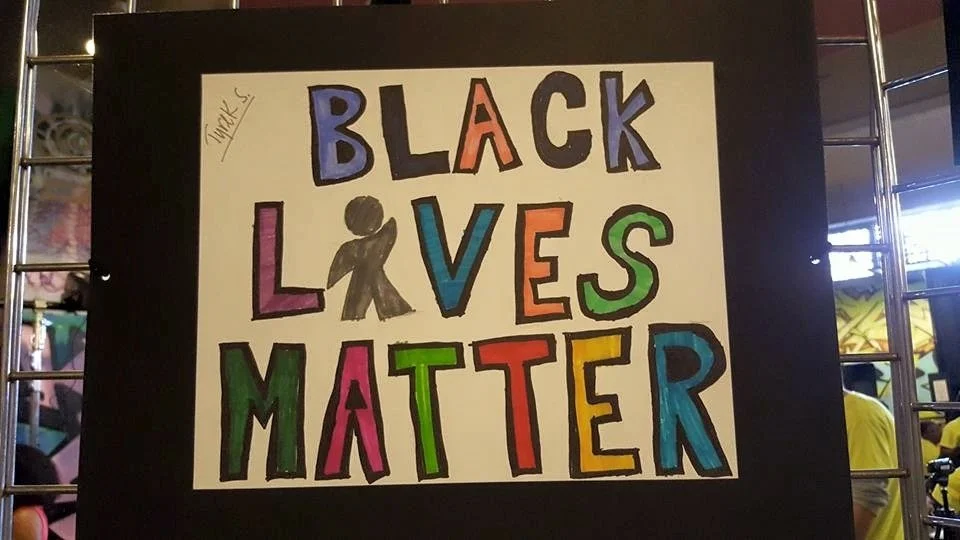 Tyrek S.
BLACK
LIVES
MATTER